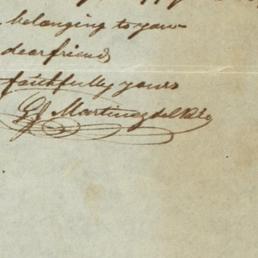 belonging to your
dear friend
faithfully yours
Martinez del Rio